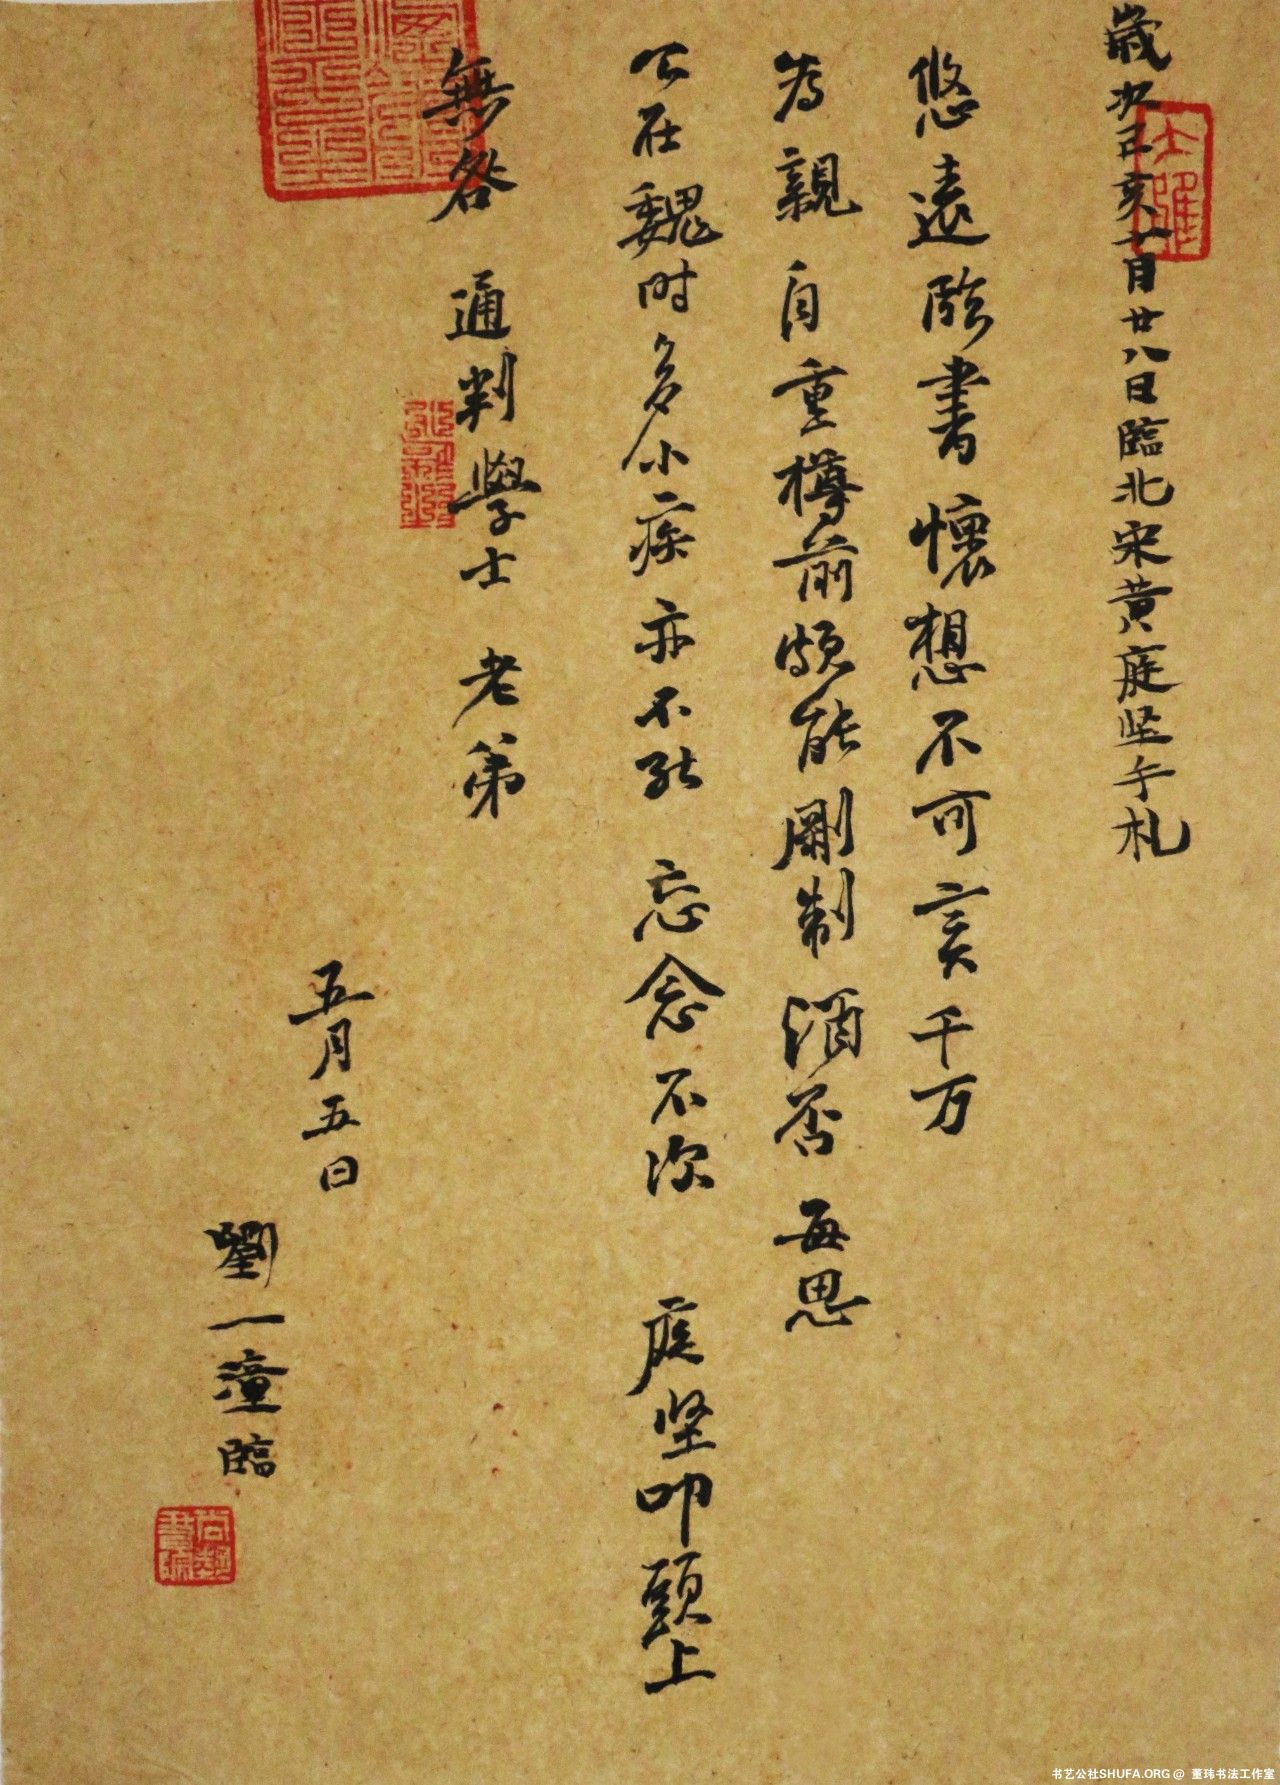 歲次己亥十月廿八日臨北宋黄庭坚手札
悠遠臨書懷想不可言千万
為親自重樽前頗能剛制酒否每思
公在魏时多小疾亦不能忘念不次庭坚叩頭上
無咎通判學士老弟
五月五日
劉一潼臨
书艺公社SHUFA.ORG @ 董玮书法工作室